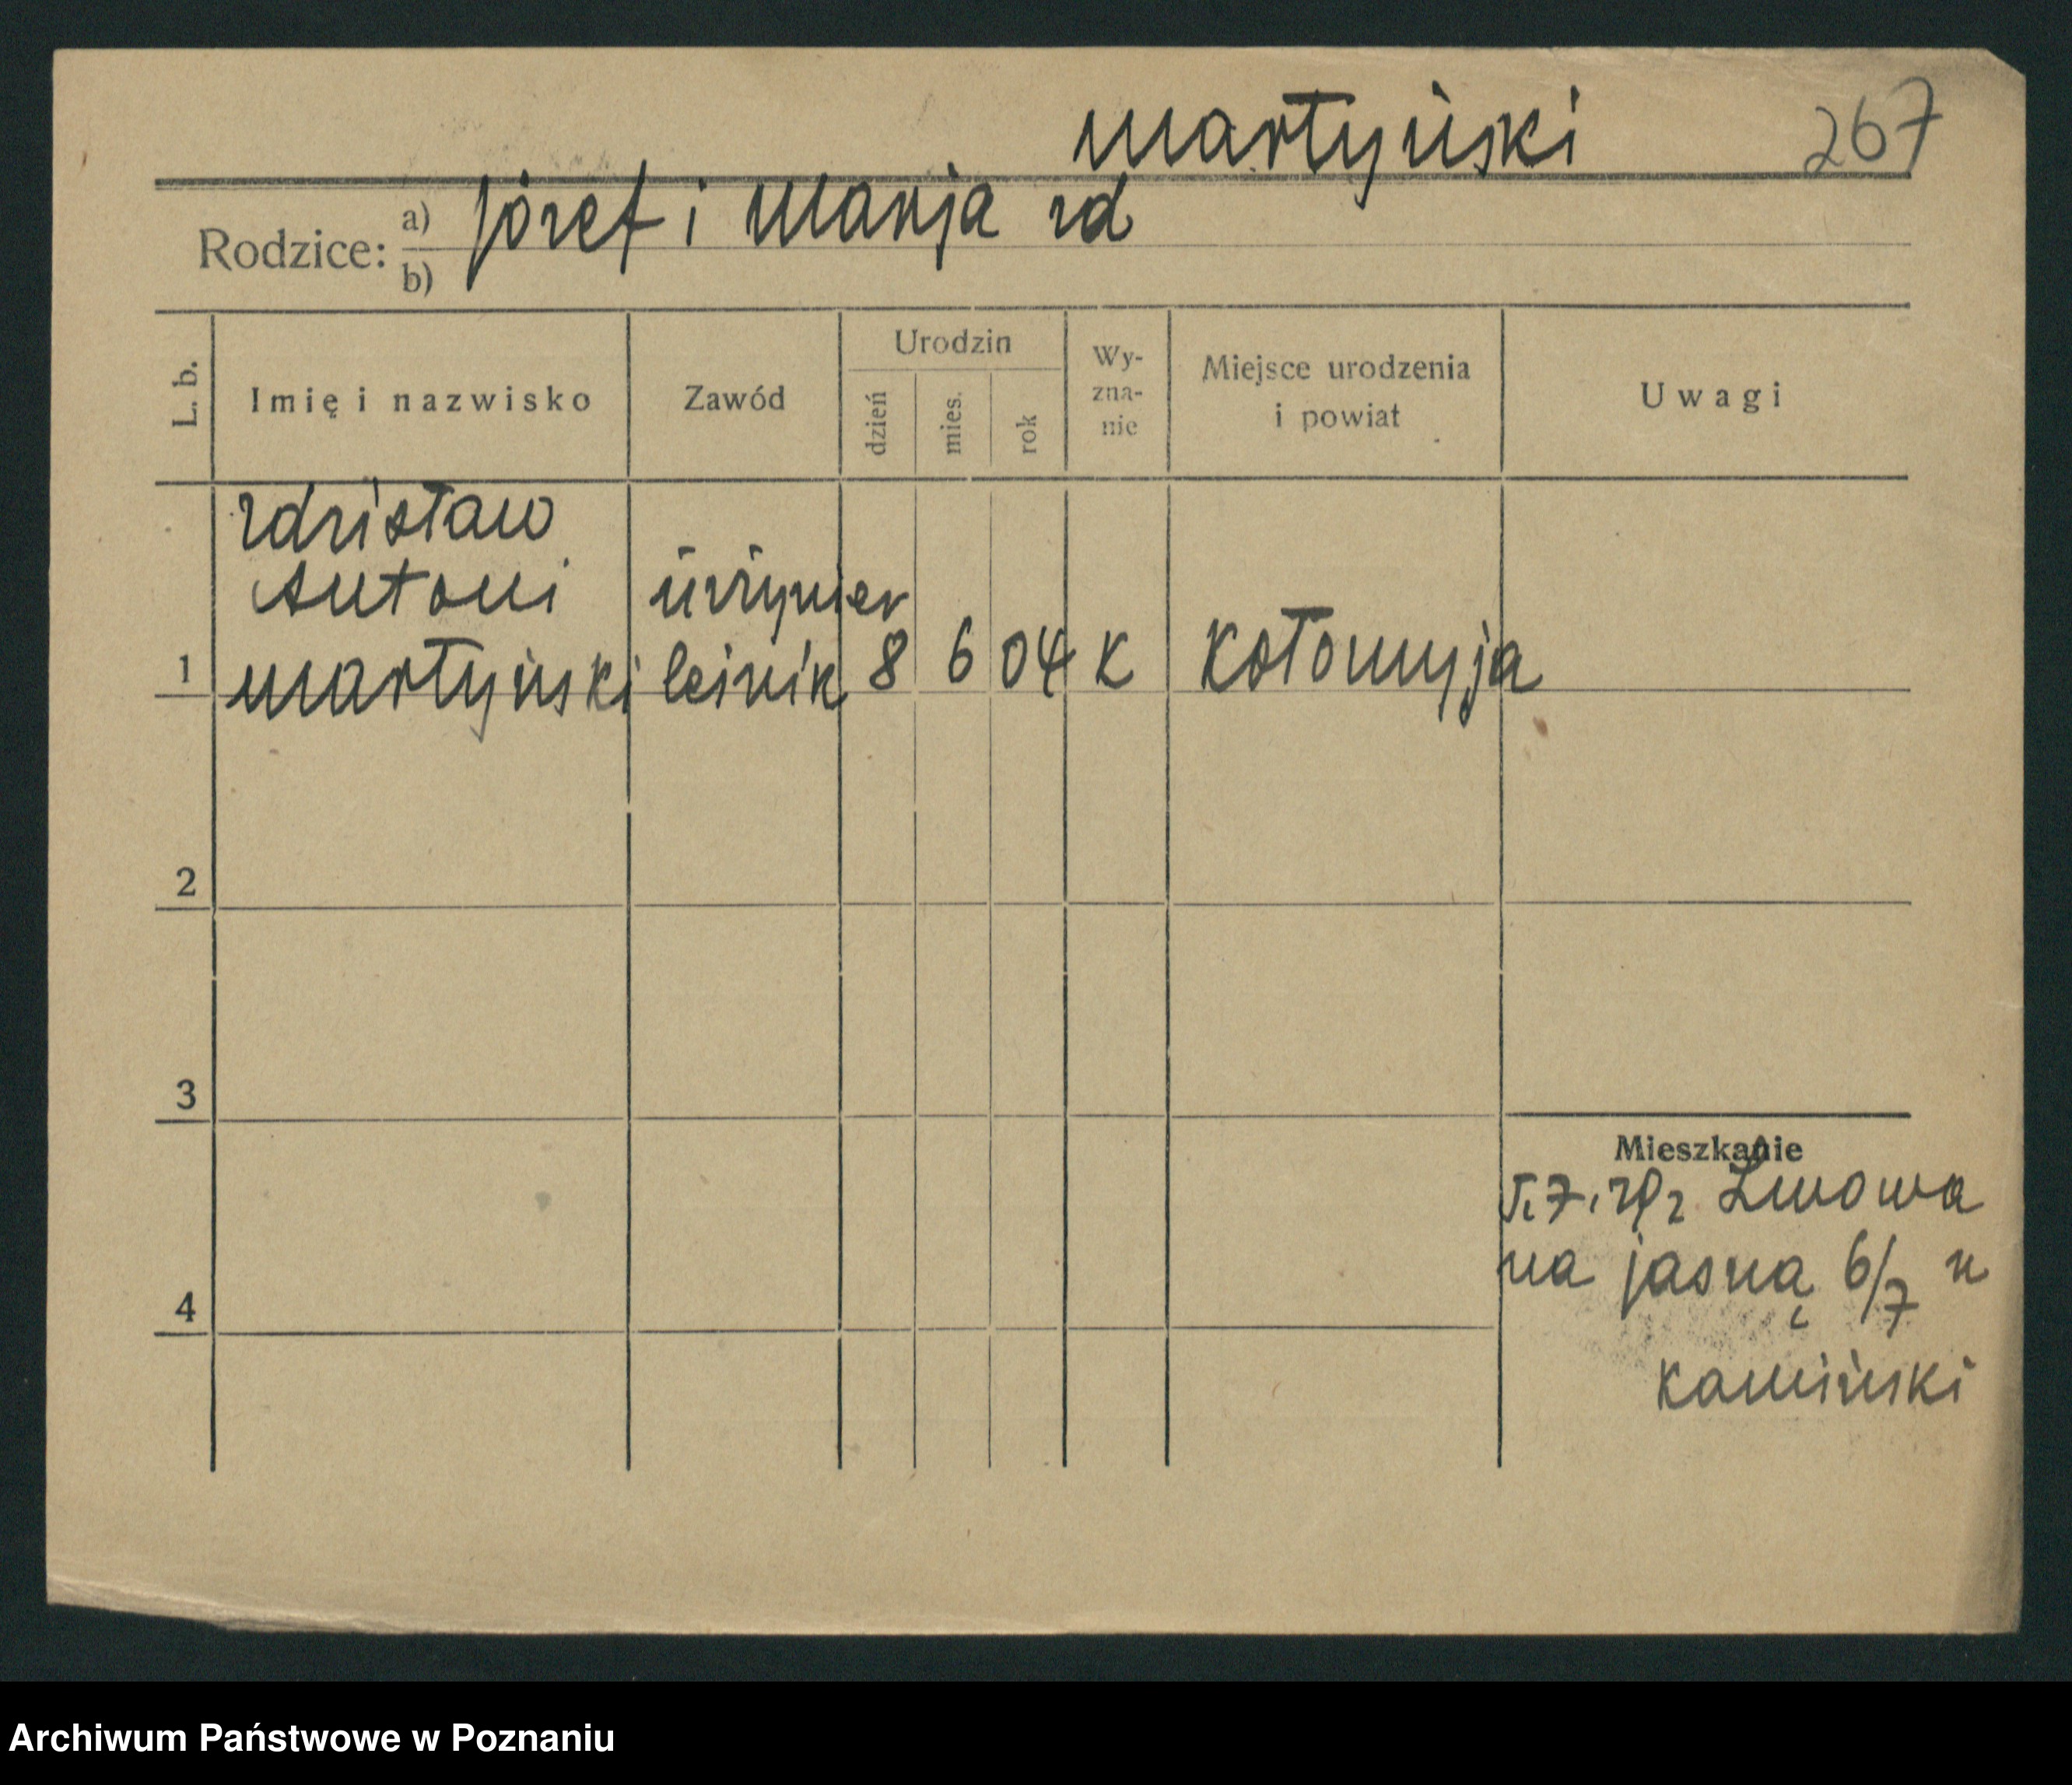 Martyński 267
Rodzice: a) Józef i Marja zd
b)
L. b. Imię i nazwisko Zawód Urodzin dzień mies. rok Wyznanie Miejsce urodzenia i powiat Uwagi
Zdzisław
Antoni inżynier
1 Martyński leśnik 8 6 04 K Kołomyja
2
3
4
Mieszkanie
Lwowa
na Jasną 6/7 u
Kamiński
Archiwum Państwowe w Poznaniu